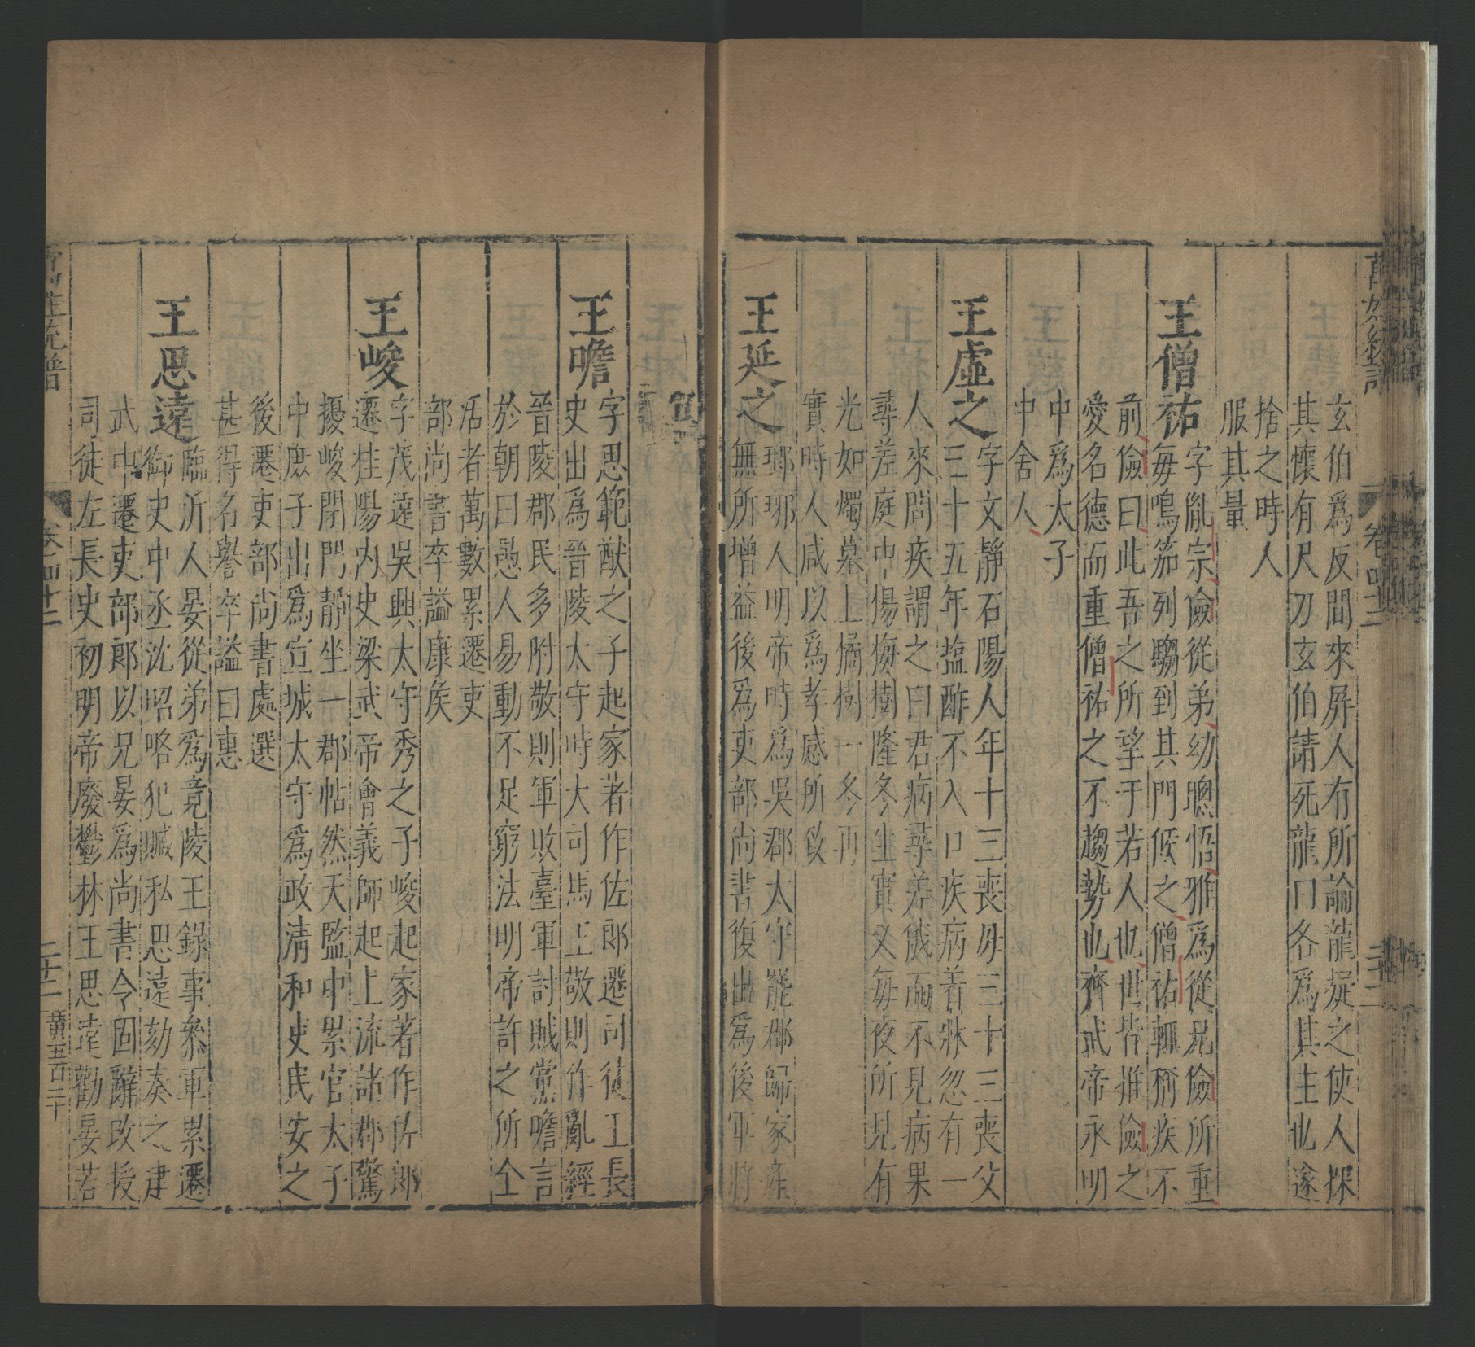 玄伯爲反間來屏人有所論龍擬之使人探
其懷有尺刀玄伯請死龍曰各爲其主也遂
捨之時人
服其量
王僧祐
字胤宗儉從弟幼聰悟雅爲從兄儉所重
每鳴笳列騶到其門候之僧祐輒稱疾不
前儉曰此吾之所望于若人也世皆推儉之
愛名德而重僧祐之不趨勢也齊武帝永明
中爲太子
中舍人
王虛之
字文靜石陽人年十三喪母三十三喪父
二十五年塩酢不入口疾病着牀忽有一
人來問疾謂之曰君病尋差俄而不見病果
尋差庭中楊梅樹隆冬生實又每夜所見有
光如燭墓上橘樹一冬再
實時人咸以爲孝感所致
王延之
瑯琊人明帝時爲吳郡太守罷郡歸家產
無所增益後爲吏部尚書復出爲後軍將
軍
王瞻
字思範猷之子起家著作佐郎遷司徒工長
史出爲晉陵太守時大司馬王敬則作亂經
晉陵郡民多附敬則軍敗臺軍討賊黨瞻言
於朝曰愚人易動不足窮法明帝許之所全
活者萬數累遷吏
部尚書卒謚康侯
王峻
字茂遠吳興太守秀之子峻起家著作佐郎
遷桂陽內史梁武帝會義師起上流諸郡驚
擾峻閉門靜坐一郡帖然天監中累官太子
中庶子出爲宣城太守爲政清和吏民安之
後遷吏部尚書處選
甚得名譽卒謚曰惠
王思遠
臨沂人晏從弟爲竟陵王錄事參軍累遷
御史中丞沈昭略犯贓私思遠劾奏之建
武中遷吏部郎以兄晏爲尚書令固辭改授
司徒左長史初明帝廢鬱林王思遠勸晏若
卷四十三
二十二
黃五百二十